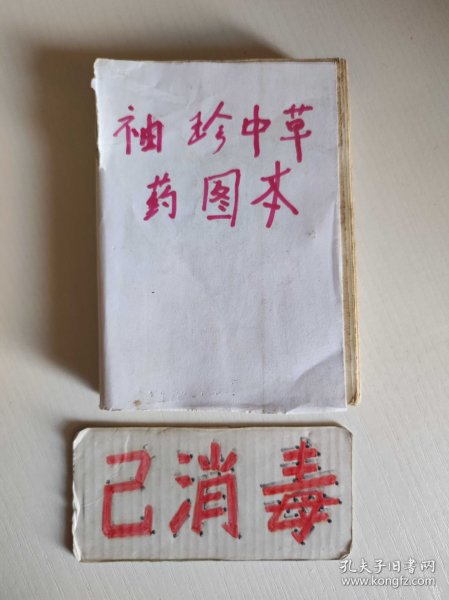 袖珍中草
药图本
己消毒
孔夫子旧书网
www.kongfz.com